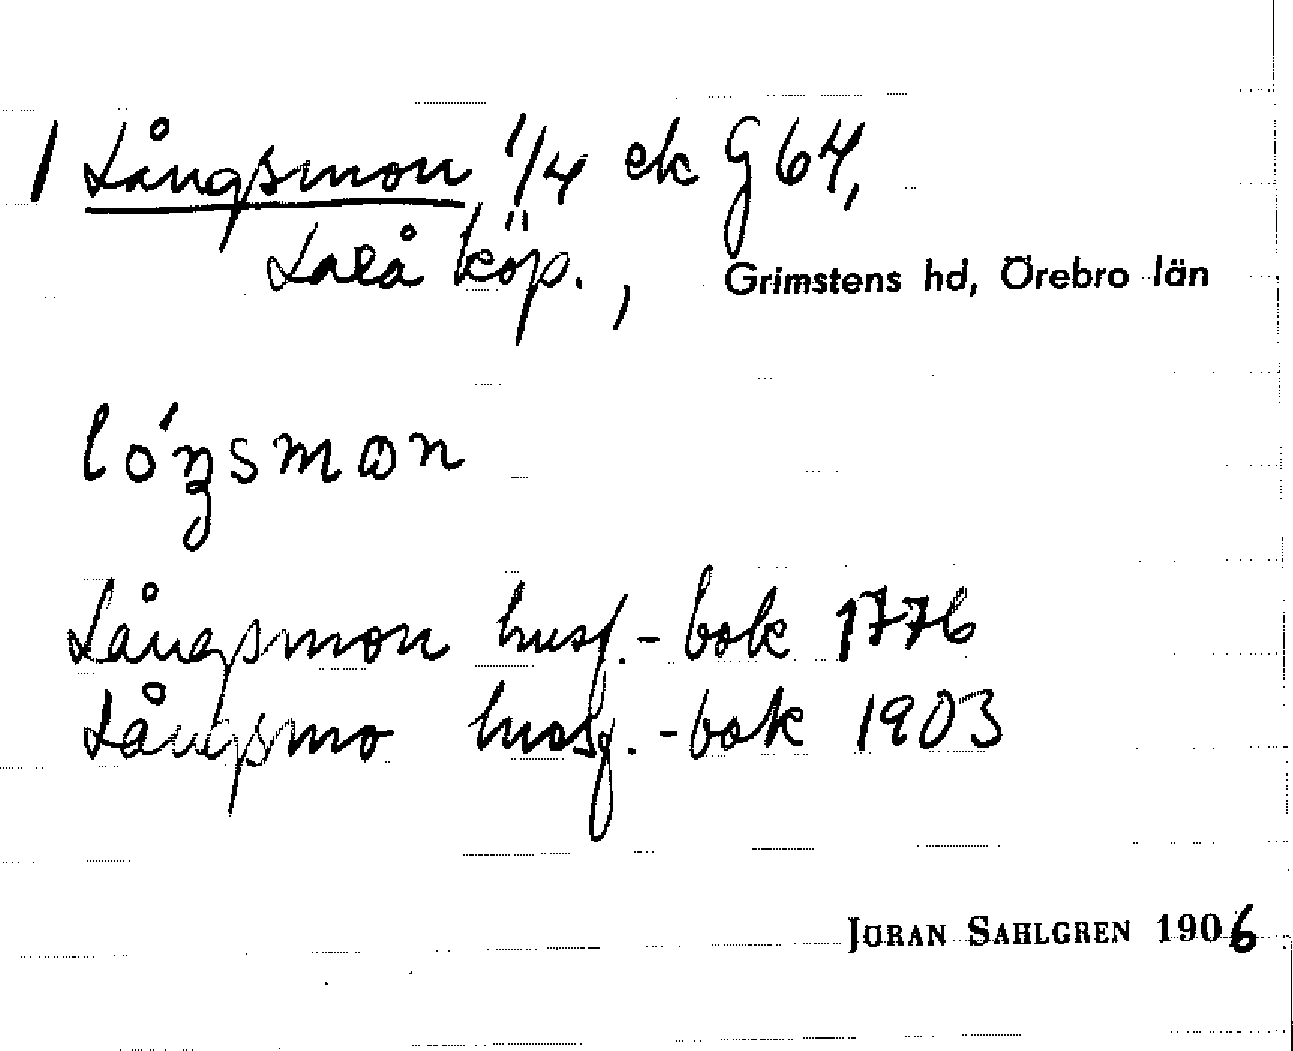 1 Långsmon 1/4 ek G 64,
Laxå köp., Grimstens hd, Örebro län
lóŋsmɷn
Långsmon husf.-bok 1776
Långsmo husf.-bok 1903
JÖRAN SAHLGREN 1906